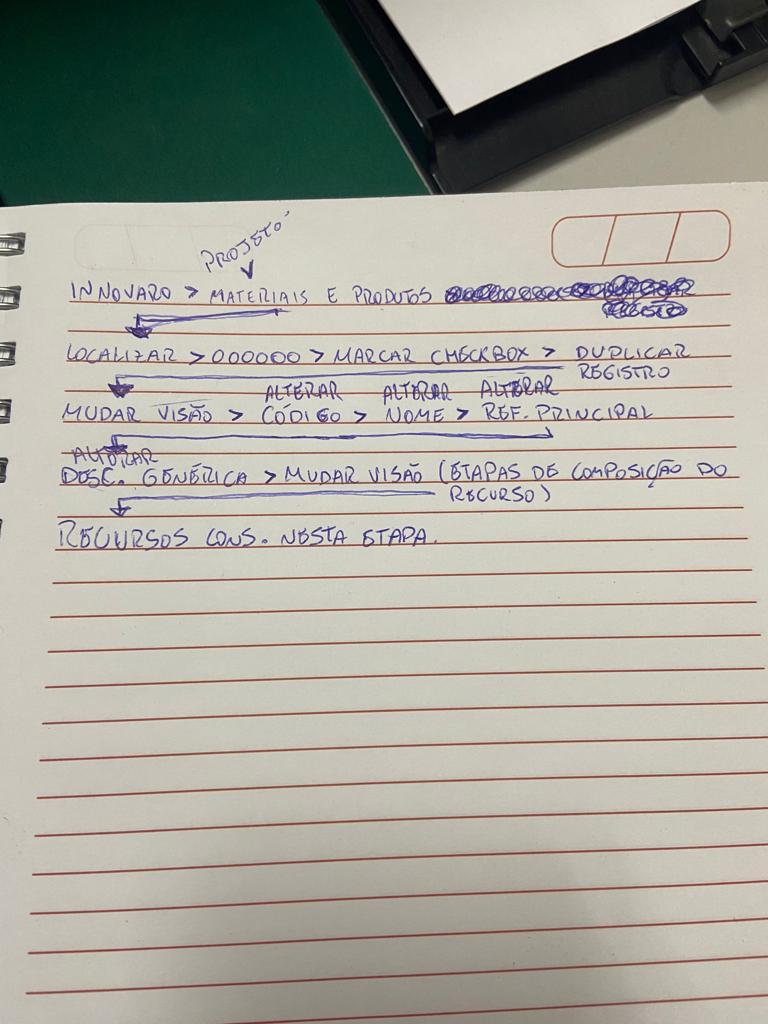 PROJETO
INNOVARO > MATERIAIS E PRODUTOS
LOCALIZAR > 000000 > MARCAR CHECKBOX > DUPLICAR
REGISTRO
ALTERAR ALTERAR ALTERAR
MUDAR VISÃO > CÓDIGO > NOME > REF. PRINCIPAL
ALTERAR
DESC. GENÉRICA > MUDAR VISÃO (ETAPAS DE COMPOSIÇÃO DO
RECURSO)
RECURSOS CONS. NESTA ETAPA.